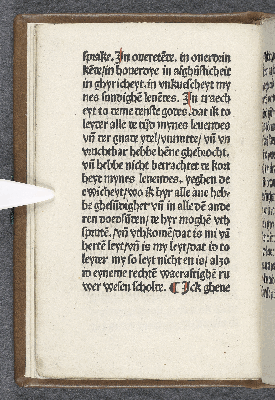 sprake. In oueretẽte. in ouerdrin
kẽte/in houerdye in afgũsticheit
in ghyricheyt. in vnkuescheyt my
nes sundighẽ leuẽtes. In traech
eyt to deme denste godes. dat ik to
leyder alle de tijd mynes leuendes
vñ der gnade ydel/vnnutte/ vñ vn
vruchtbar hebbe hẽne ghebrocht.
vñ hebbe nicht betrachtet de kort
heyt mynes leuendes. yeghen de
ewicheyt/wo ik hyr alle āue heb
be ghesũdighet vñ in alle dẽ ande
ren doetsũden/de hyr moghẽ vth
sprutẽ. /vñ vthkomẽ/dat is mi vā
hertẽ leyt/vñ is my leyt/dat id to
leyder my so leyt nicht en is/ alzo
id eyneme rechtẽ warafrighẽ ru
wer wesen scholde. ¶ Ick ghene